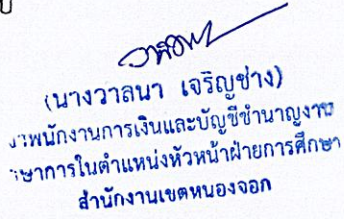 (นางวาสนา เจริญช่าง)
พนักงานการเงินและบัญชีชำนาญงาน
ษาการในตำแหน่งหัวหน้าฝ่ายการศึกษา
สำนักงานเขตหนองจอก